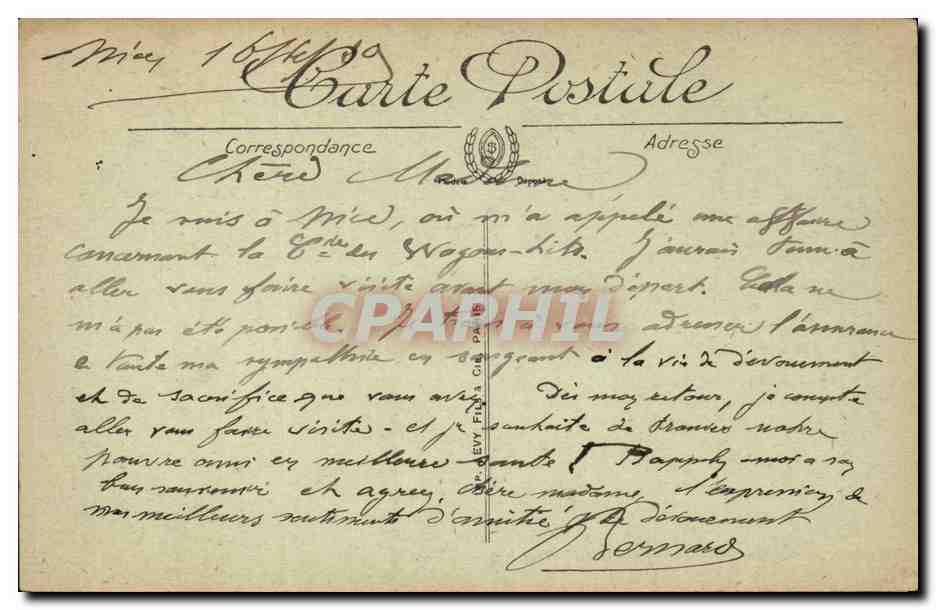 Nice, 16
Carte Postale
Correspondance
Adresse
Chère Madame
Je suis à Nice, où m'a appelé une affaire
concernant la Cie des Wagons-Lits. J'aurais tenu à
aller vous faire visite avant mon départ. Cela ne
m'a pas été possible. Je tiens à vous adresser l'assurance
de toute ma sympathie en songeant à la vie de dévouement
et de sacrifice que vous avez. Dès mon retour, je compte
aller vous faire visite - et je souhaite de trouver notre
pauvre ami en meilleure santé ! Rappelez-moi à son
bon souvenir et agréez, chère madame, l'expression de
mes meilleurs sentiments d'amitié & de dévouement
Bernard
CPARPHIL
LEVY FILS & CIE, PARIS